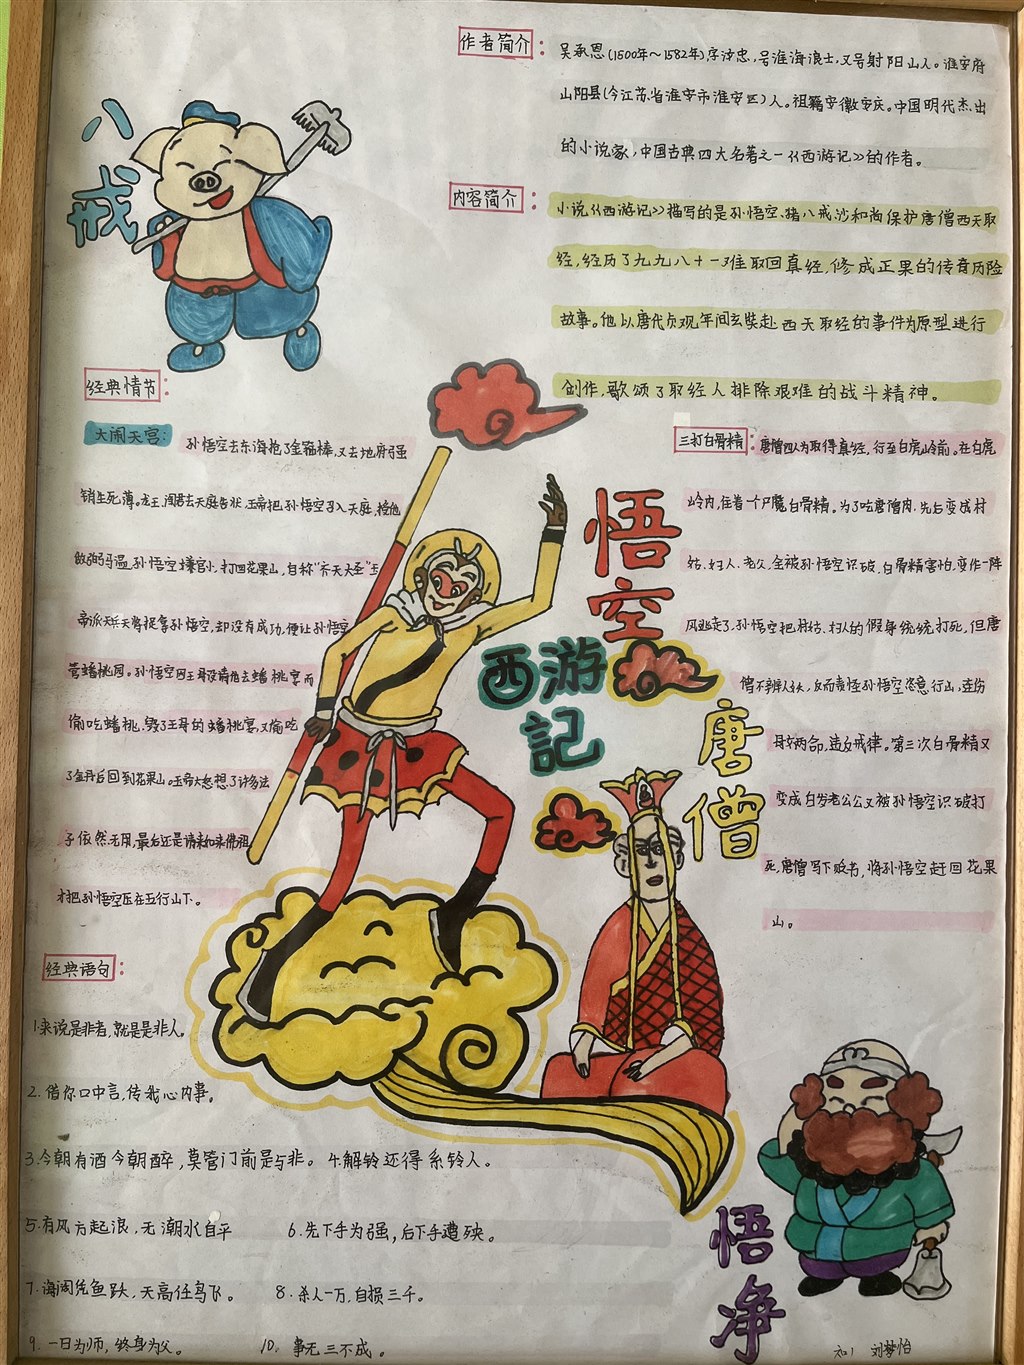 作者简介：
吴承恩(1500年～1582年)字汝忠,号淮海浪士,又号射阳山人。淮安府
山阳县(今江苏省淮安市淮安区)人。祖籍安徽安庆。中国明代杰出
的小说家,中国古典四大名著之一《西游记》的作者。
内容简介：
小说《西游记》描写的是孙悟空、猪八戒沙和尚保护唐僧西天取
经,经历了九九八十一难取回真经,修成正果的传奇历险
故事。他以唐代贞观年间玄奘赴西天取经的事件为原型进行
创作,歌颂了取经人排除艰难的战斗精神。
八戒
经典情节：
大闹天宫:
孙悟空去东海抢了金箍棒,又去地府强
销生死薄。龙王、阎君去天庭告状,玉帝把孙悟空召入天庭,授他
做弼马温,孙悟空嫌官小,打回花果山,自称“齐天大圣”玉
帝派天兵天将捉拿孙悟空,却没有成功,便让孙悟空
管蟠桃园。孙悟空因王母没请他去蟠桃宴而
偷吃蟠桃,毁了王母的蟠桃宴,又偷吃
了金丹后回到花果山。玉帝大怒想了许多法
子依然无用,最后还是请来如来佛祖
才把孙悟空压在五行山下。
三打白骨精：
唐僧四人为取得真经,行至白虎岭前。在白虎
岭内,住着一个尸魔白骨精。为了吃唐僧肉,先后变成村
姑、妇人、老父,全被孙悟空识破,白骨精害怕,变作一阵
风逃走了,孙悟空把村姑、妇人的假身统统打死,但唐
僧不辨人妖,反而责怪孙悟空恣意行山,连伤
母女两命,违反戒律。第三次白骨精又
变成白发老公公又被孙悟空识破打
死,唐僧写下贬书,将孙悟空赶回花果
山。
悟空
西游
記
唐僧
经典语句：
1.来说是非者,就是是非人。
2.借你口中言,传我心内事。
3.今朝有酒今朝醉,莫管门前是与非。 4.解铃还得系铃人。
5.有风方起浪,无潮水自平 6.先下手为强,后下手遭殃。
7.海阔凭鱼跃,天高任鸟飞。 8.杀人一万,自损三千。
9.一日为师,终身为父。 10.事无三不成。
悟净
初1 刘梦怡